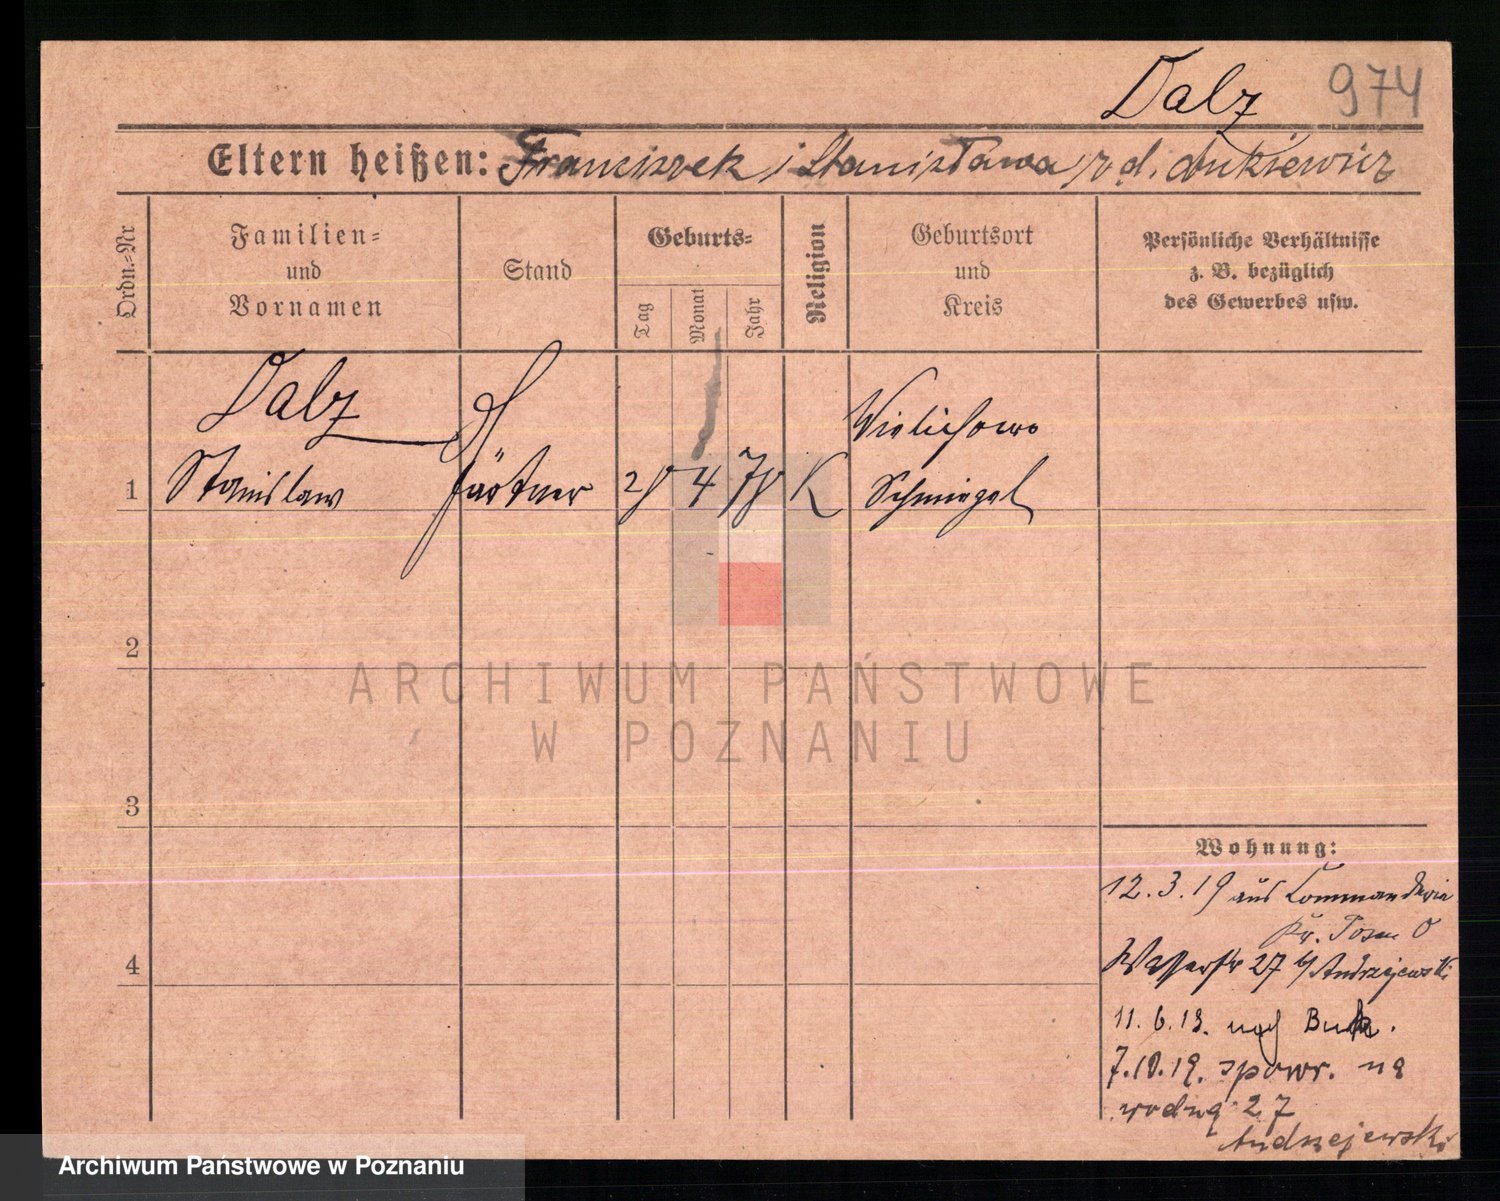 Dalz 974
Eltern heißen: Franciszek i Stanisława z d. Lukiewicz
Ordn.=Nr
Familien=
und
Vornamen
Stand
Geburts=
Tag
Monat
Jahr
Religion
Geburtsort
und
Kreis
Persönliche Verhältnisse
z. B. bezüglich
des Gewerbes usw.
Dalz
1 Stanislaw Gärtner 28 4 78 K Wielichowo
Schmiegel
2
3
4
ARCHIWUM PAŃSTWOWE
W POZNANIU
Wohnung:
12.3.19 aus Commanderie
Kr. Posen O
Wasserstr 27 b/Andrzejewski
11.6.19. nach Buk.
7.10.19. spowr. na
wodną 27
Andrzejewski
Archiwum Państwowe w Poznaniu